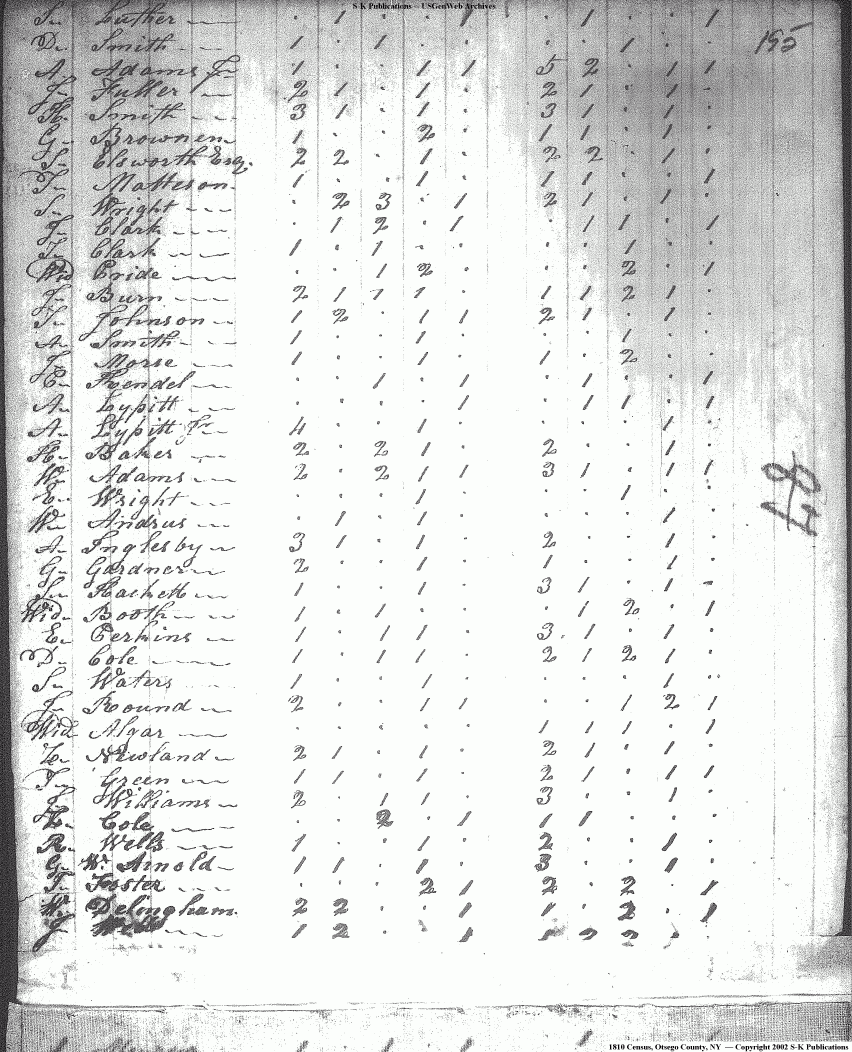 S-K Publications - USGenWeb Archives
195
Luther · 1 · · 1 · 1 · · 1
D. Smith 1 · 1 · · · · 1 · ·
A. Adams Jr 1 · · 1 1 5 2 · 1 1
Fuller 2 1 · 1 · 2 1 · 1 -
Smith 3 1 · 1 · 3 1 · 1 ·
G. Brownen 1 · · 2 · 1 1 · 1 ·
Elsworth Esq. 2 2 · 1 · 2 2 · 1 ·
Matteson 1 · · 1 · 1 1 · · 1
S. Wright · 2 3 · 1 2 1 · 1 ·
Clark · 1 2 · 1 · 1 1 · 1
Clark 1 · 1 - · · · 1 · ·
Wid Pride · · 1 2 · · · 2 · 1
J. Burn 2 1 1 1 · 1 1 2 1 ·
S. Johnson 1 2 · 1 1 2 1 · 1 ·
A. Smith 1 · · 1 · · · 1 · ·
Morse 1 · · 1 · 1 · 2 · ·
Kendel · · 1 · 1 · · · · 1
A. Lypitt · · · · 1 · 1 1 · 1
A. Lypitt Jr 4 · · 1 · · · · 1 ·
H. Baker 2 · 2 1 · 2 · · 1 ·
W. Adams 2 · 2 1 1 3 1 · 1 1
E. Wright · · · 1 · · · 1 · ·
W. Andrus · 1 · 1 · · · · 1 ·
A. Inglesby 3 1 · 1 · 2 · · 1 ·
G. Gardner 2 · · 1 · 1 · · 1 ·
S. Hackett 1 · · 1 · 3 1 · 1 -
Wid. Booth 1 · 1 · · · 1 2 · 1
E. Perkins 1 · 1 1 · 3 1 · 1 ·
D. Cole 1 · 1 1 · 2 1 2 1 ·
S. Waters 1 · · 1 · · · · 1 ·
J. Round 2 · · 1 1 · · 1 2 1
Wid. Algar · · · · · 1 1 1 · 1
Z. Newland 2 1 · 1 · 2 1 · 1 ·
T. Green 1 1 · 1 · 2 1 · 1 1
Williams 2 · 1 1 · 3 · · 1 ·
Cole · · 2 · 1 1 1 · · ·
R. Wells 1 · · 1 · 2 · · 1 ·
G. W. Arnold 1 1 · 1 · 3 · · 1 ·
T. Foster · · · 2 1 2 · 2 · 1
W. Delingham 2 2 · · 1 1 · 2 · 1
J. 1 2 · · 1 1 2 2 · 1
1810 Census, Otsego County, NY — Copyright 2002 S-K Publications